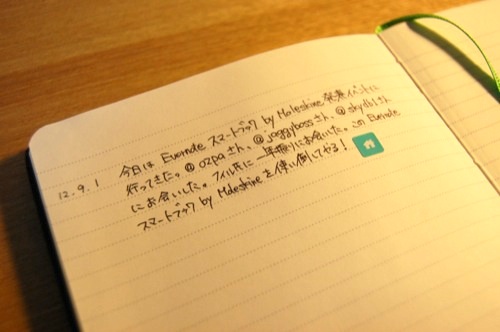 12.9.1 今日は Evernote スマートブック by Moleskine 発表イベントに
行ってきた。@ozpaさん、@jaggybossさん、@skydblさん
にお会いした。フィル氏に一年振りにお会いた。このEvernote
スマートブック by Moleskine を使い倒してやる!